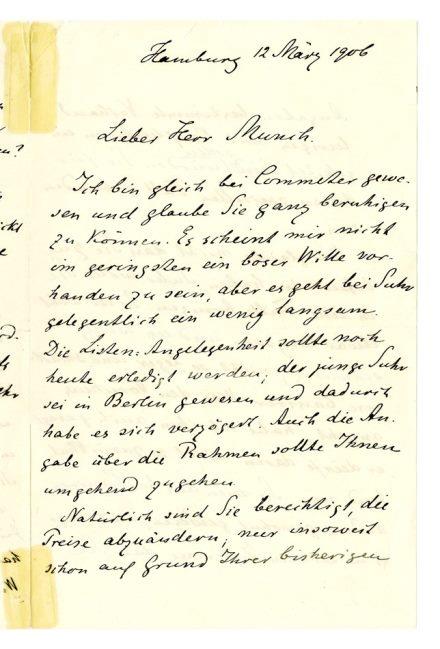 Hamburg 12 März 1906
Lieber Herr Munch.
Ich bin gleich bei Commeter gewe-
sen und glaube Sie ganz beruhigen
zu können. Es scheint mir nicht
im geringsten ein böser Wille vor-
handen zu sein, aber es geht bei Suhr
gelegentlich ein wenig langsam.
Die Listen-Angelegenheit sollte noch
heute erledigt werden, der junge Suhr
sei in Berlin gewesen und dadurch
habe es sich verzögert. Auch die An-
gabe über die Rahmen sollte Ihnen
umgehend zugehen.
Natürlich sind Sie berechtigt, die
Preise abzuändern, nur insoweit
schon auf Grund Ihrer bisherigen